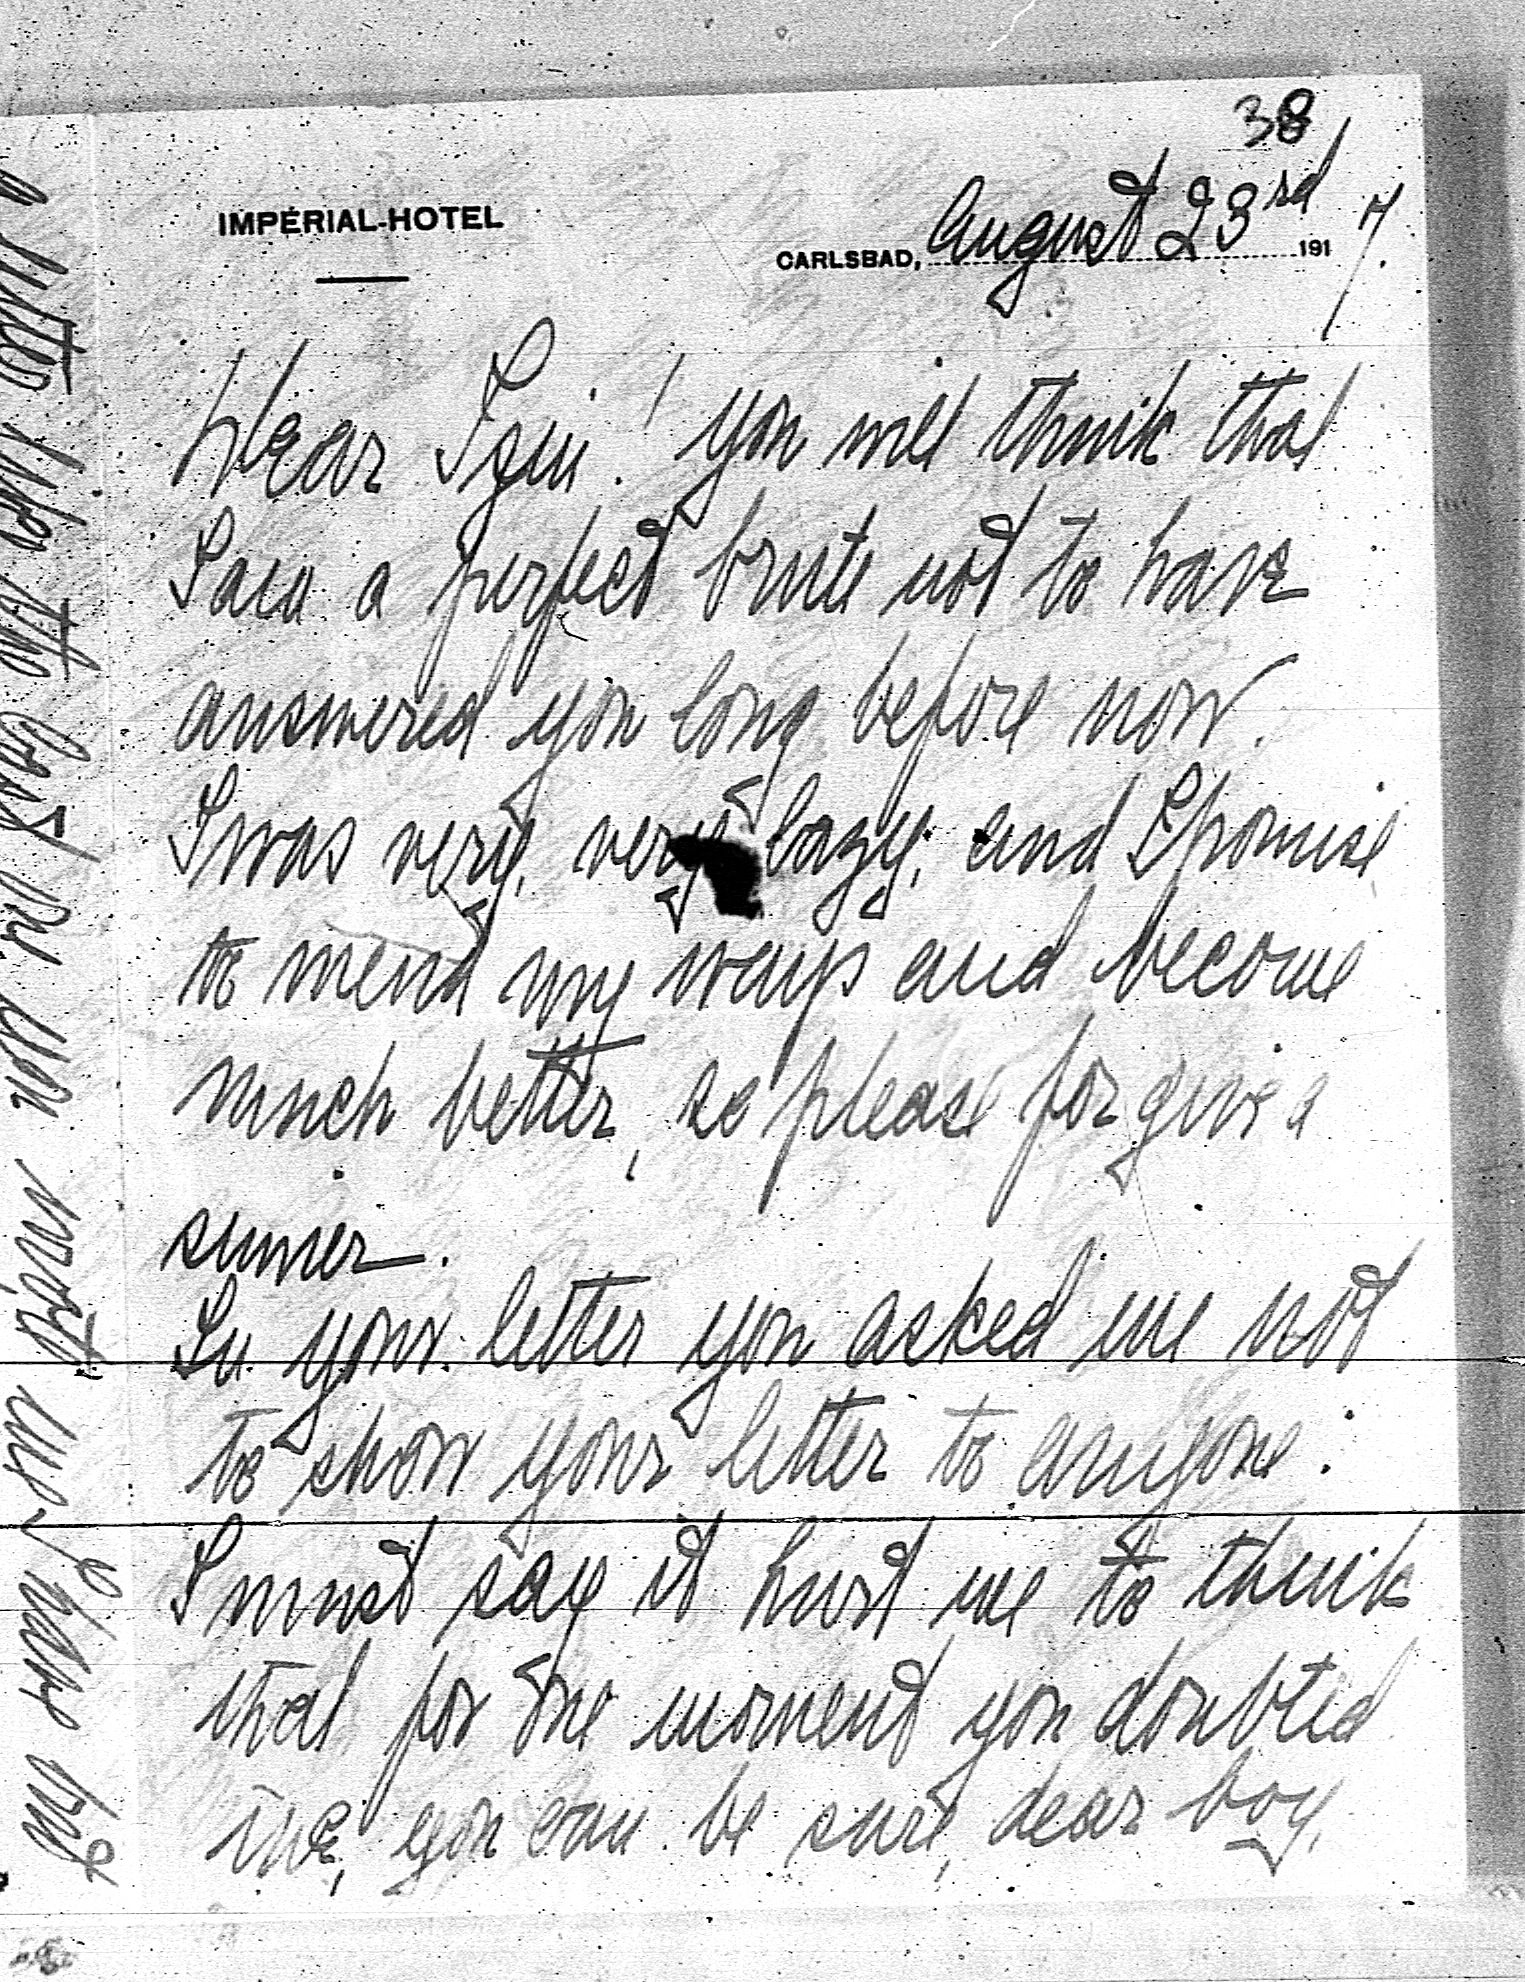 38
IMPÉRIAL-HOTEL
CARLSBAD, August 23rd 1917.
Dear ! you will think that
I am a perfect brute not to have
answered you long before now.
I was very, very lazy, and I promise
to mend my ways and become
much better, so please forgive a
sinner.
In your letter you asked me not
to show your letter to anyone:
I must say it hurt me to think
that for one moment you doubted
me, you can be sure, dear boy,